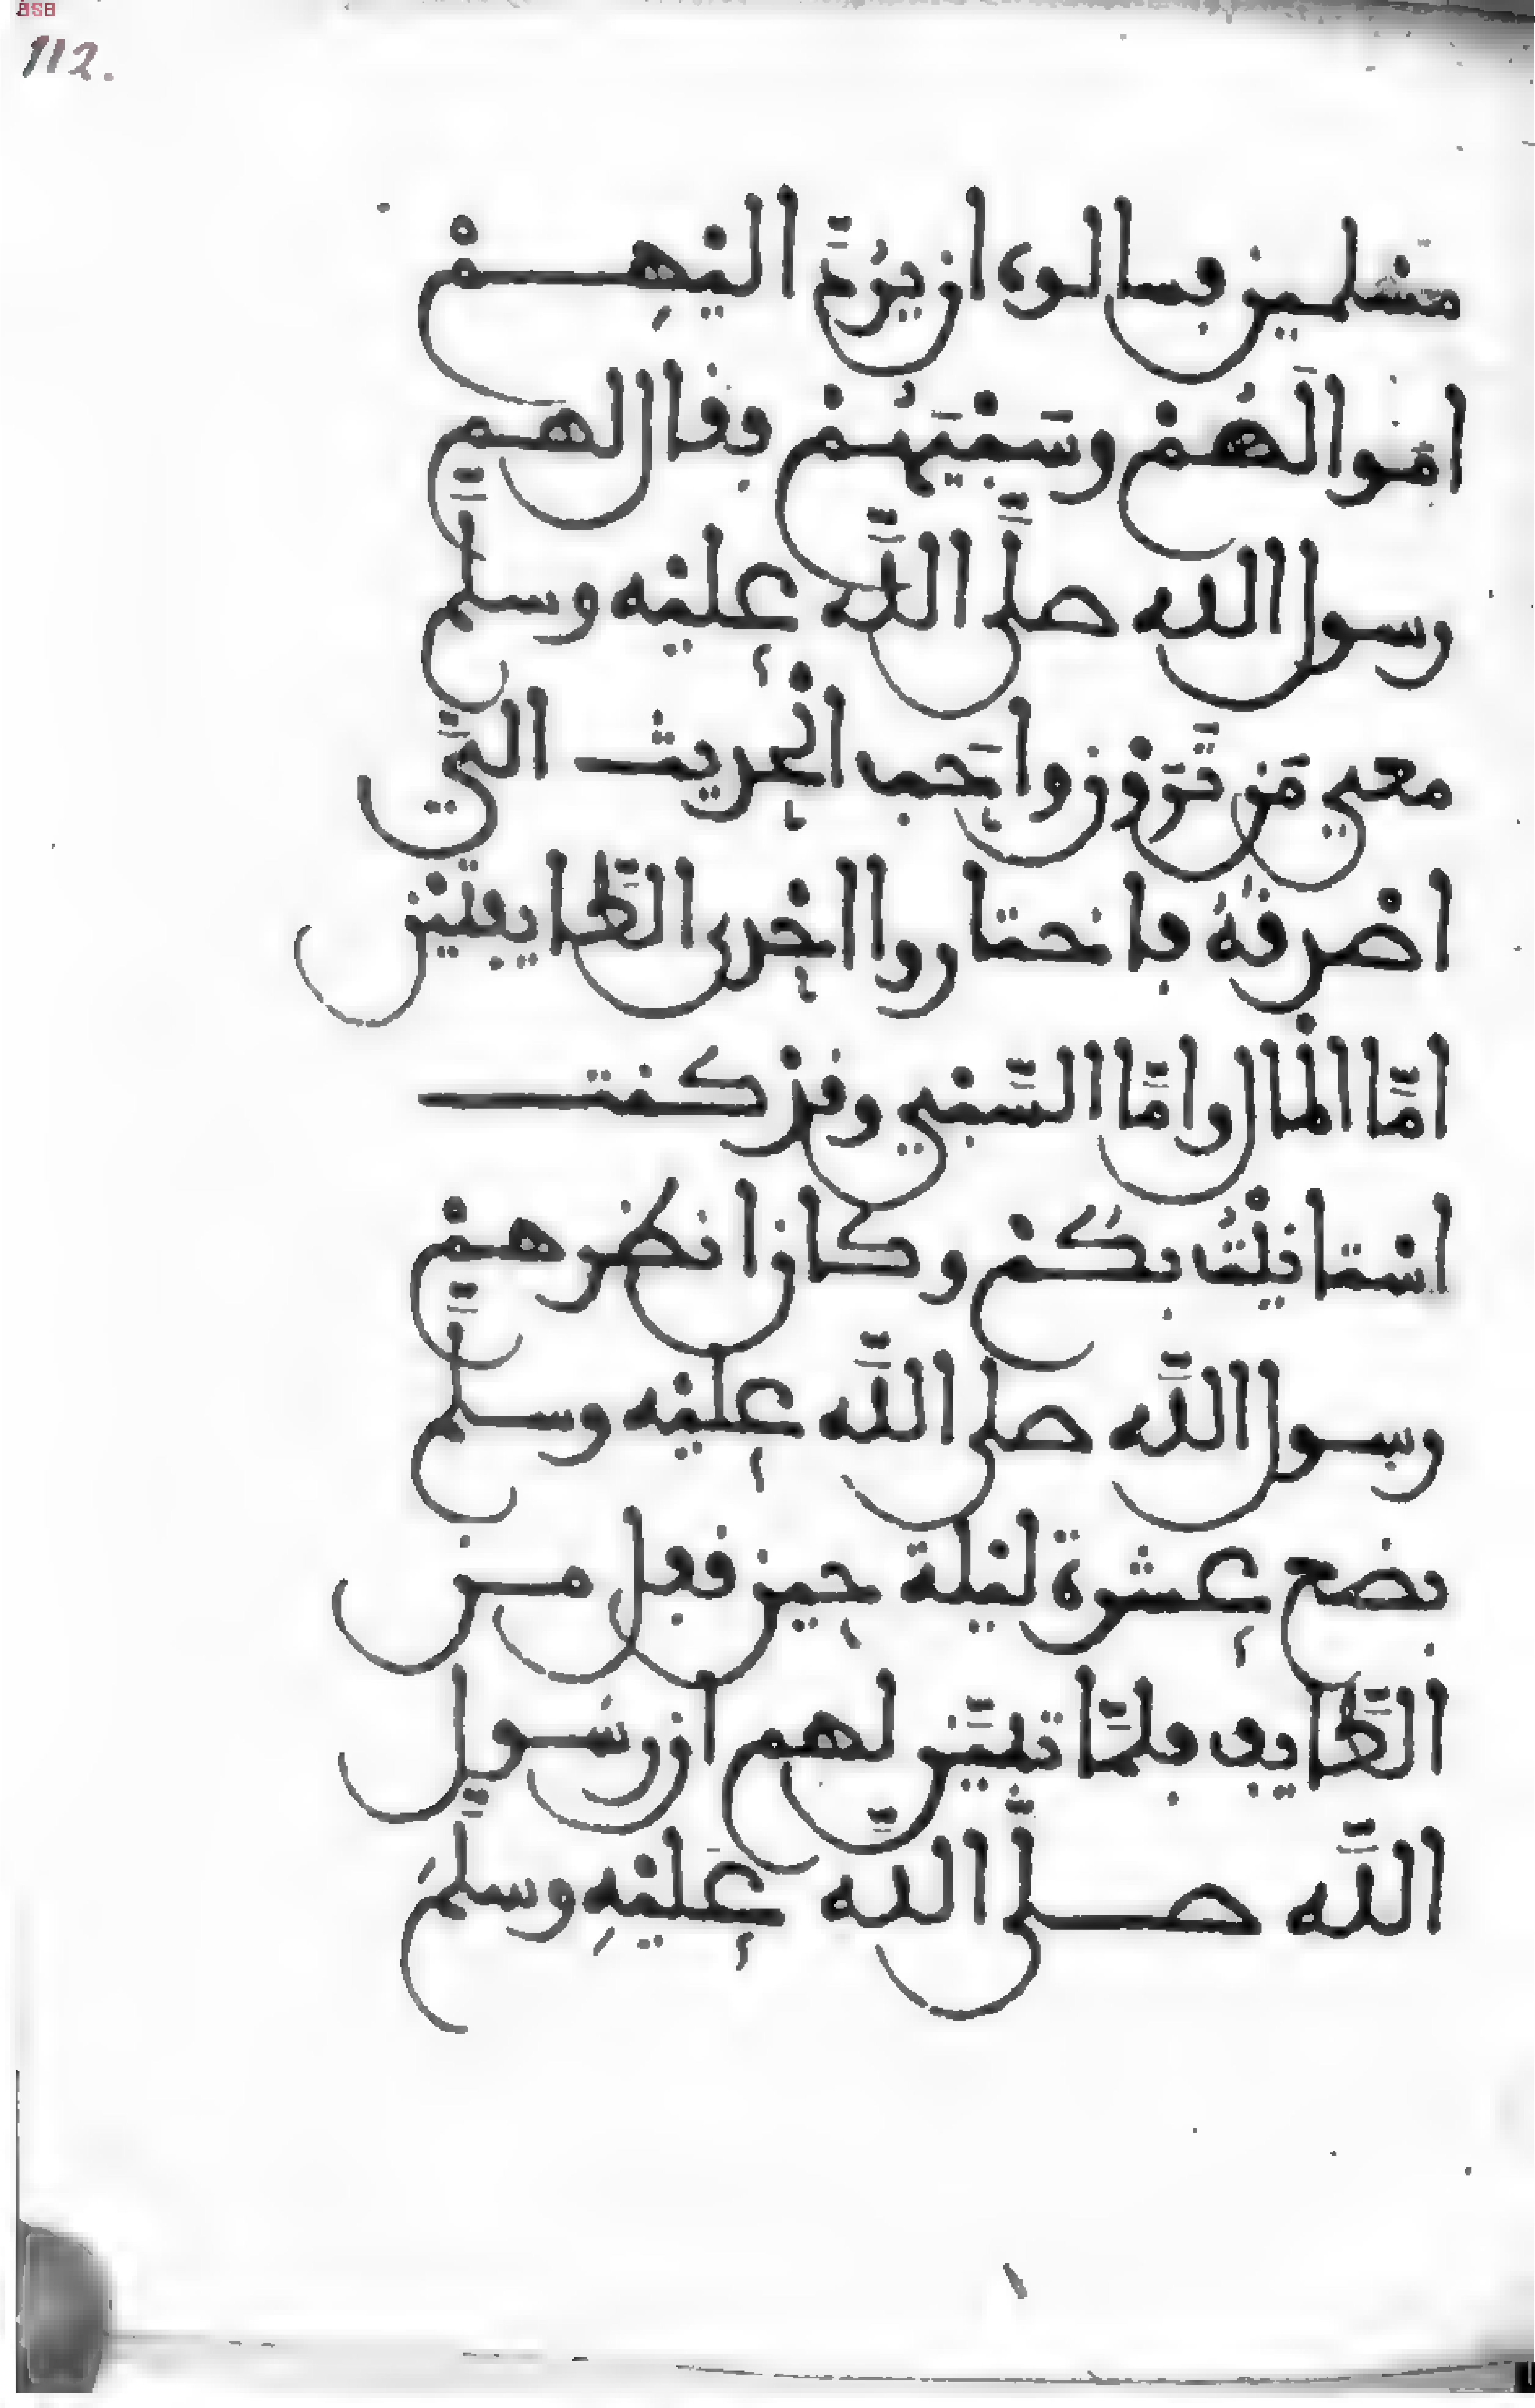 112.
مسلمين فسالوه ان يرُدَّ اليْهِمْ
امْوالهُمْ وسَبْيَهُمْ فقال لهم
رسول الله صلَّى اللَّه عليْه وسلَّم
معي مَن تَّرَوْن واَحَب الْحديث اليَّ
اصْدقهُ فاختاروا احْدى الطَّايفتيْن
امَّا الْمال وامَّا السَّبْي وقدْ كنت
اسْتانيْتُ بكُمْ وكان انظرهمْ
رسول اللَّه صلى اللَّه عليْه وسلَّم
بضع عشرة ليْلة حين قفل من
الطَّايف فلمَّا تبيَّن لهم ان رسُول
اللَّه صلَّى اللَّه عَليْهِ وسلَّمَ